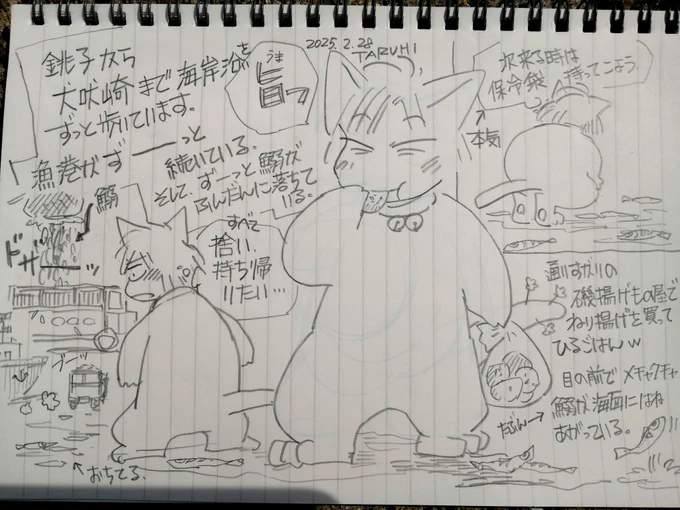 銚子から
犬吠崎まで海岸沿を
ずっと歩いています。
漁港がずーーっと
続いている。
そして、ずーっと鰯が
ふんだんに落ちて
いる。
うま
旨っ
2025.2.28
TARUHI
次来る時は
保冷袋持ってこよう。
本気
鰯
ドザーーッ
すべて
拾い、
持ち帰
りたい…
通りすがりの
磯揚げもの屋で
ねり揚げを買って
ひるごはんw
目の前でメチャクチャ
鰯が海面にはね
あがっている。
たぶん→
←おちてる。